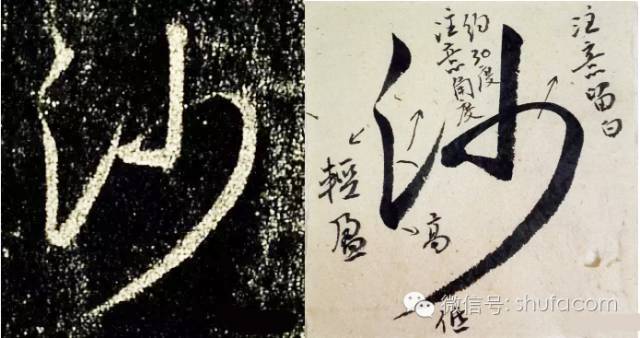 沙
沙
约30度
注意角度
注意留白
輕盈
高
低
微信号: shufacom